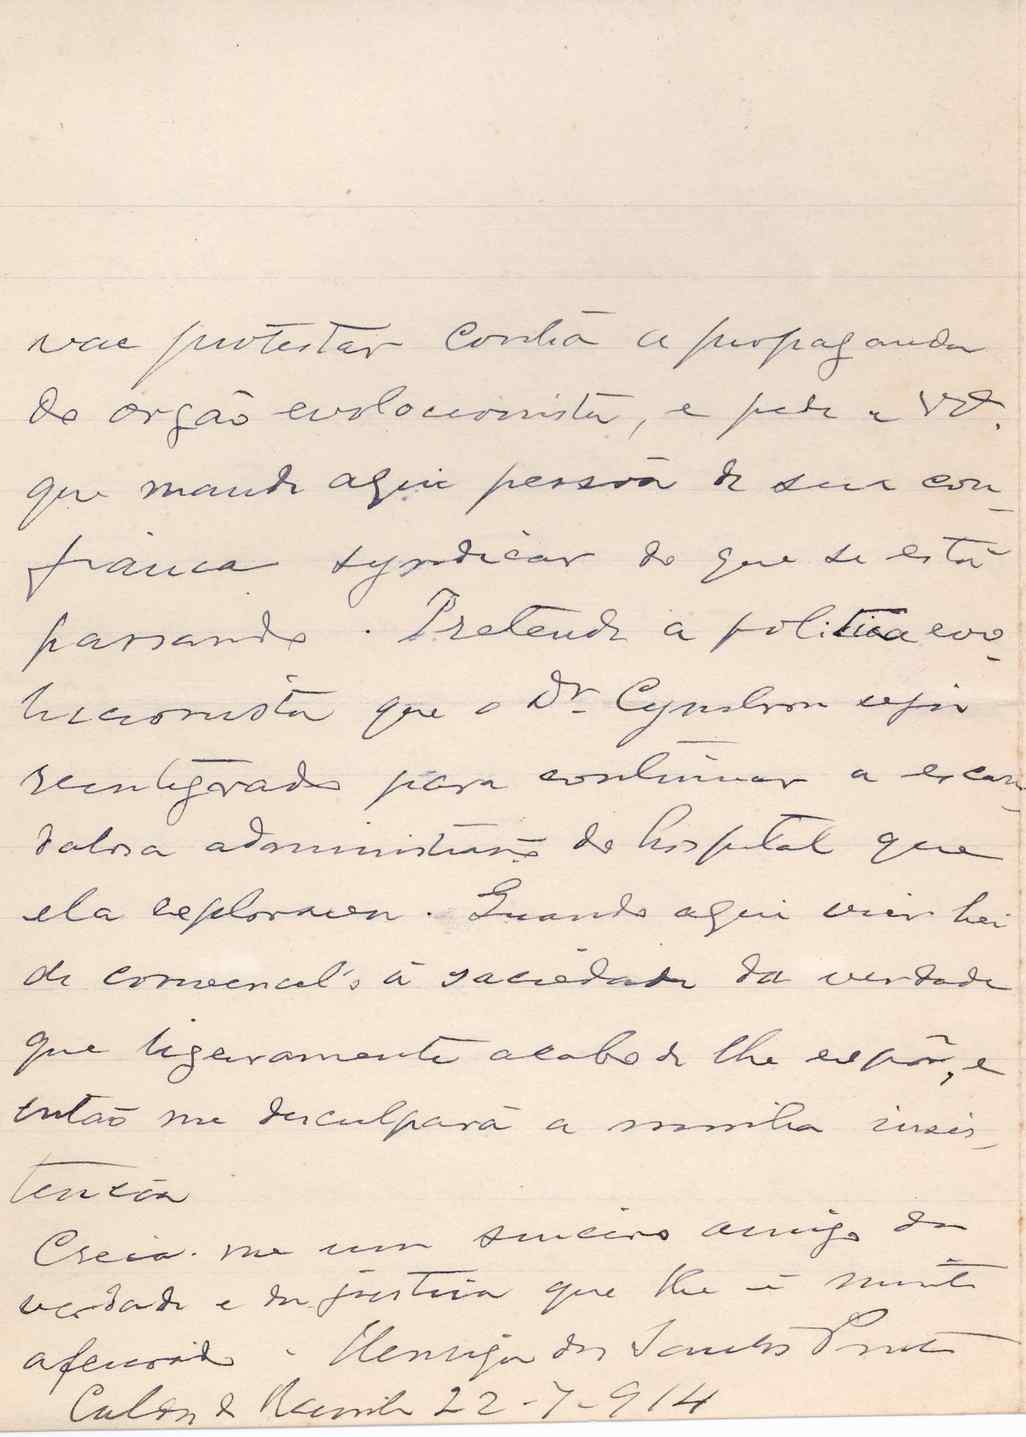 vae protestar contra a propaganda
do orgão evolocionista, e pede a
que mande aqui pessoa de sua con-
fiança syndicar do que se está
passando. Pretende a politica evo-
lucionista que o Dr. seja
reintegrado para continuar a escan-
dalosa administração do hospital que
ela explorava. Quando aqui vier hei
de á saciedade da verdade
que ligeiramente acabo de lhe expôr, e
então me desculpará a minha insis-
tencia
Creia-me um sincero amigo da
verdade e da justiça que lhe é muito
afeiçoado. Henrique dos Santos
Caldas da Rainha 22-7-914